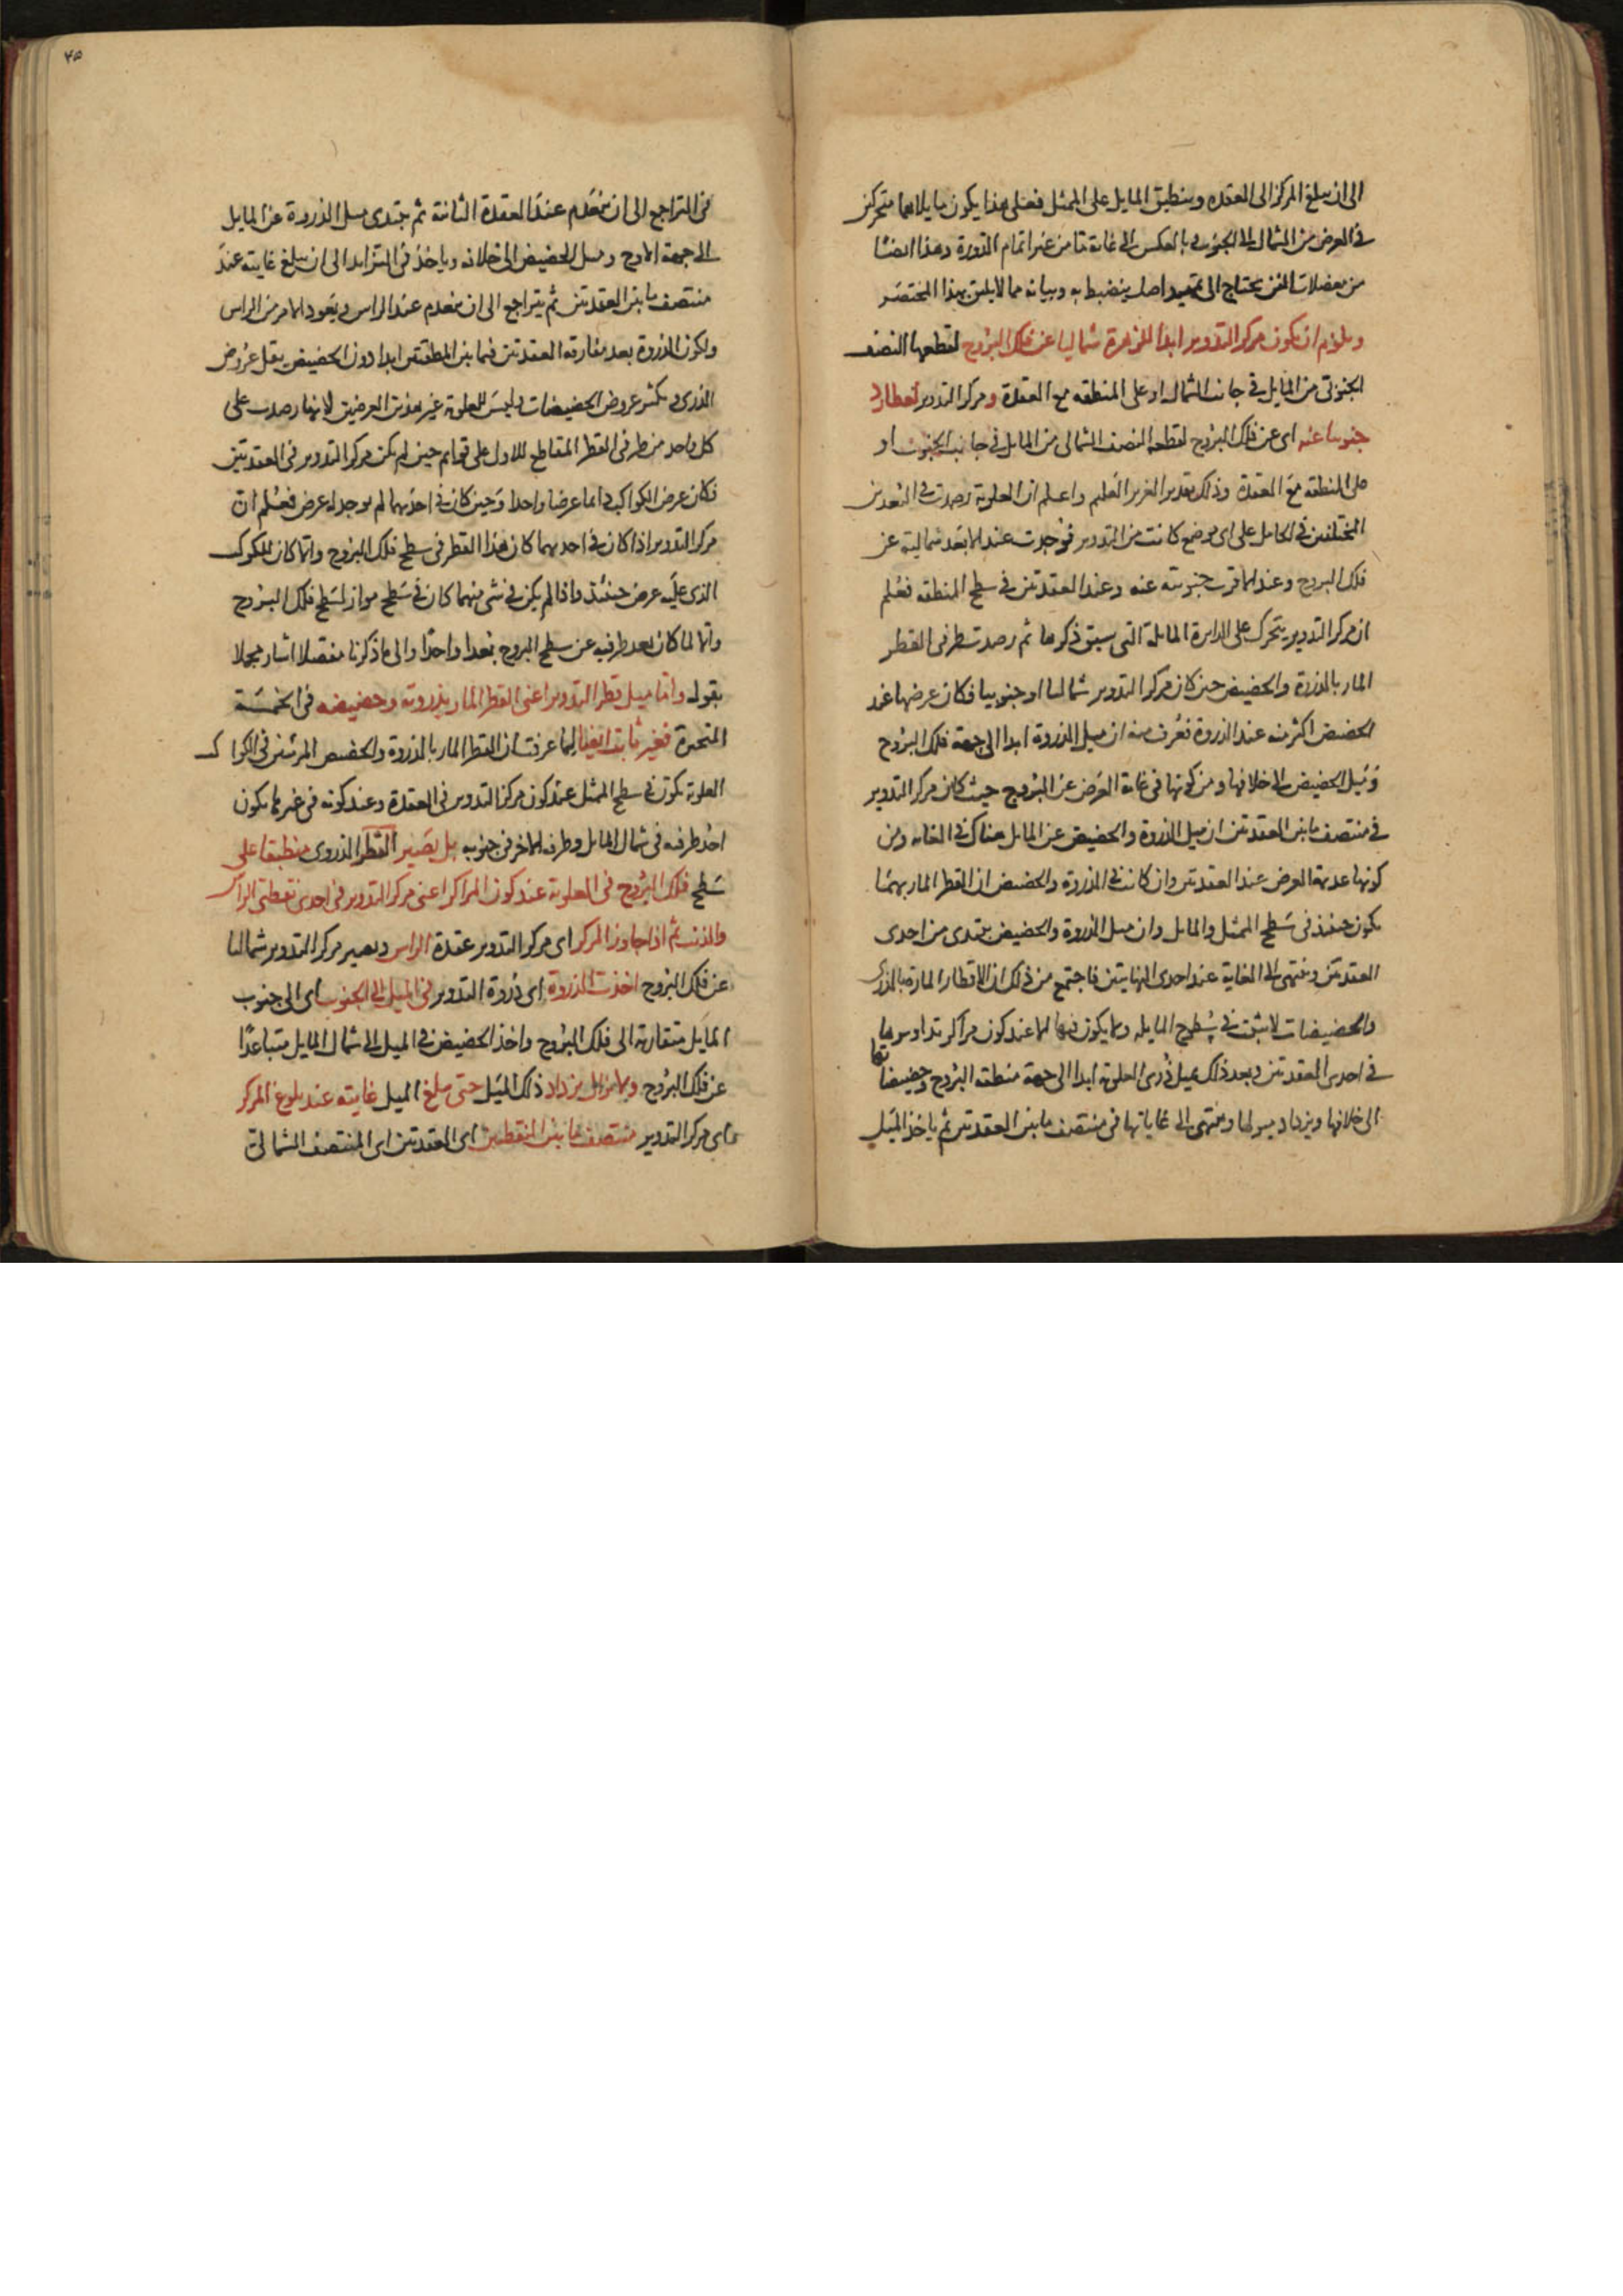 الى ان يبلغ المركز الى العقدة وينطبق المايل على الممثل فعلى هذا يكون مايلاهما متحركين
في العرض من الشمال الى الجنوب وبالعكس الى غاية ما من غير اتمام الدورة وهذا ايضا
من معضلات الفن يحتاج الى تمهيد اصل ينضبط به وبيانه مما لا يليق بهذا المختصر
ويلزم ان يكون مركز التدوير ابدا للزهرة شماليا عن فلك البروج لقطعها النصف
الجنوبي من المايل في جانب الشمال او على المنطقه مع العقدة ومركز التدوير لعطارد
جنوبيا عنه اى عن فلك البروج لقطعه النصف الشمالى من المايل في جانب الجنوب او
على المنطقه مع العقدة وذلك تقدير العزيز العليم واعلم ان العلوية رصدت في البعدين
المختلفين في الحامل على اى موضع كانت من التدوير فوجدت عند الابعد شمالية عن
فلك البروج وعند الاقرب جنوبية عنه وعند العقدتين في سطح المنطقه فعلم
ان مركز التدوير يتحرك على الدايرة المايلة التى سبق ذكرها ثم رصدت طرفى القطر
المار بالذروة والحضيض حين كان مركز التدوير شماليا او جنوبيا فكان عرضها عند
الحضيض اكثر منه عند الذروة فعرف منه ان ميل الذروة ابدا الى جهة فلك البروج
وميل الحضيض الى خلافها ومن كونها في غاية العرض عن البروج حيث كان مركز التدوير
في منتصف ما بين العقدتين ان ميل الذروة والحضيض عن المايل هناك في الغايه ومن
كونها عديمة العرض عند العقدتين وان كانت في الذروة والحضيض ان القطر المار بهما
يكون حينئذ في سطح الممثل والمايل وان ميل الذروة والحضيض يبتدى من احدى
العقدتين وينتهى الى الغاية عند احدى النهايتين فاجتمع من ذلك ان الاقطار المارة بالذرى
والحضيضات لا تثبت في سطوح المايله ولا يكون فيها الا عند كون مراكز تداويرها
في احدى العقدتين وبعد ذلك يميل ذرى العلوية ابدا الى جهة منطقه البروج وحضيضاتها
الى خلافها ويزداد ميولها وينتهى الى غاياتها في منتصف ما بين العقدتين ثم ياخذ الميل
۴۵
في التراجع الى ان ينعدم عند العقدة الثانية ثم يبتدى ميل الذروة عن المايل
الى جهة الاوج وميل الحضيض الى خلافه وياخذ في التزايد الى ان يبلغ غايته عند
منتصف ما بين العقدتين ثم يتراجع الى ان ينعدم عند الراس ويعود الامر من الراس
ولكون الذروة بعد مفارقة العقدتين فيما بين المنطقتين ابدا دون الحضيض يقل عروض
الذرى ويكثر عروض الحضيضات وليس للعلوية غير هذين العرضين لانها رصدت على
كل واحد من طرفى القطر المقاطع للاول على قوايم حين لم يكن مركز التدوير في العقدتين
فكان عرض الكواكب دايما عرضا واحدا وحين كان في احدهما لم يوجد له عرض فعلم ان
مركز التدوير اذا كان في احديهما كان هذا القطر في سطح فلك البروج والا كان للكوكب
الذى عليه عرض حينئذ واذا لم يكن في شى منهما كان في سطح مواز لسطح فلك البروج
والا لما كان بعد طرفيه عن سطح البروج بعدا واحدا والى ما ذكرنا مفصلا اشار مجملا
بقوله واما ميل قطر التدوير اعنى القطر المار بذروته وحضيضه في الخمسة
المتحيرة فغير ثابت ايضا لما عرفت ان القطر المار بالذروة والحضيض المرئيين في الكواكب
العلوية يكون في سطح الممثل عند كون مركز التدوير في العقدة وعند كونه في غيرها يكون
احد طرفيه في شمال المايل وطرفه الاخر في جنوبه بل يصير القطر الذروى منطبقا على
سطح فلك البروج في العلوية عند كون المركز اعنى مركز التدوير في احدى نقطتى الراس
والذنب ثم اذا جاوز المركز اى مركز التدوير عقدة الراس ويصير مركز التدوير شماليا
عن فلك البروج اخذت الذروة اى ذروة التدوير في الميل الى الجنوب اى الى جنوب
المايل متقاربة الى فلك البروج واخذ الحضيض في الميل الى شمال المايل متباعدا
عن فلك البروج ولا يزال يزداد ذلك الميل حتى يبلغ الميل غايته عند بلوغ المركز
اى مركز التدوير منتصف ما بين النقطتين اى العقدتين اى المنتصف الشمالى